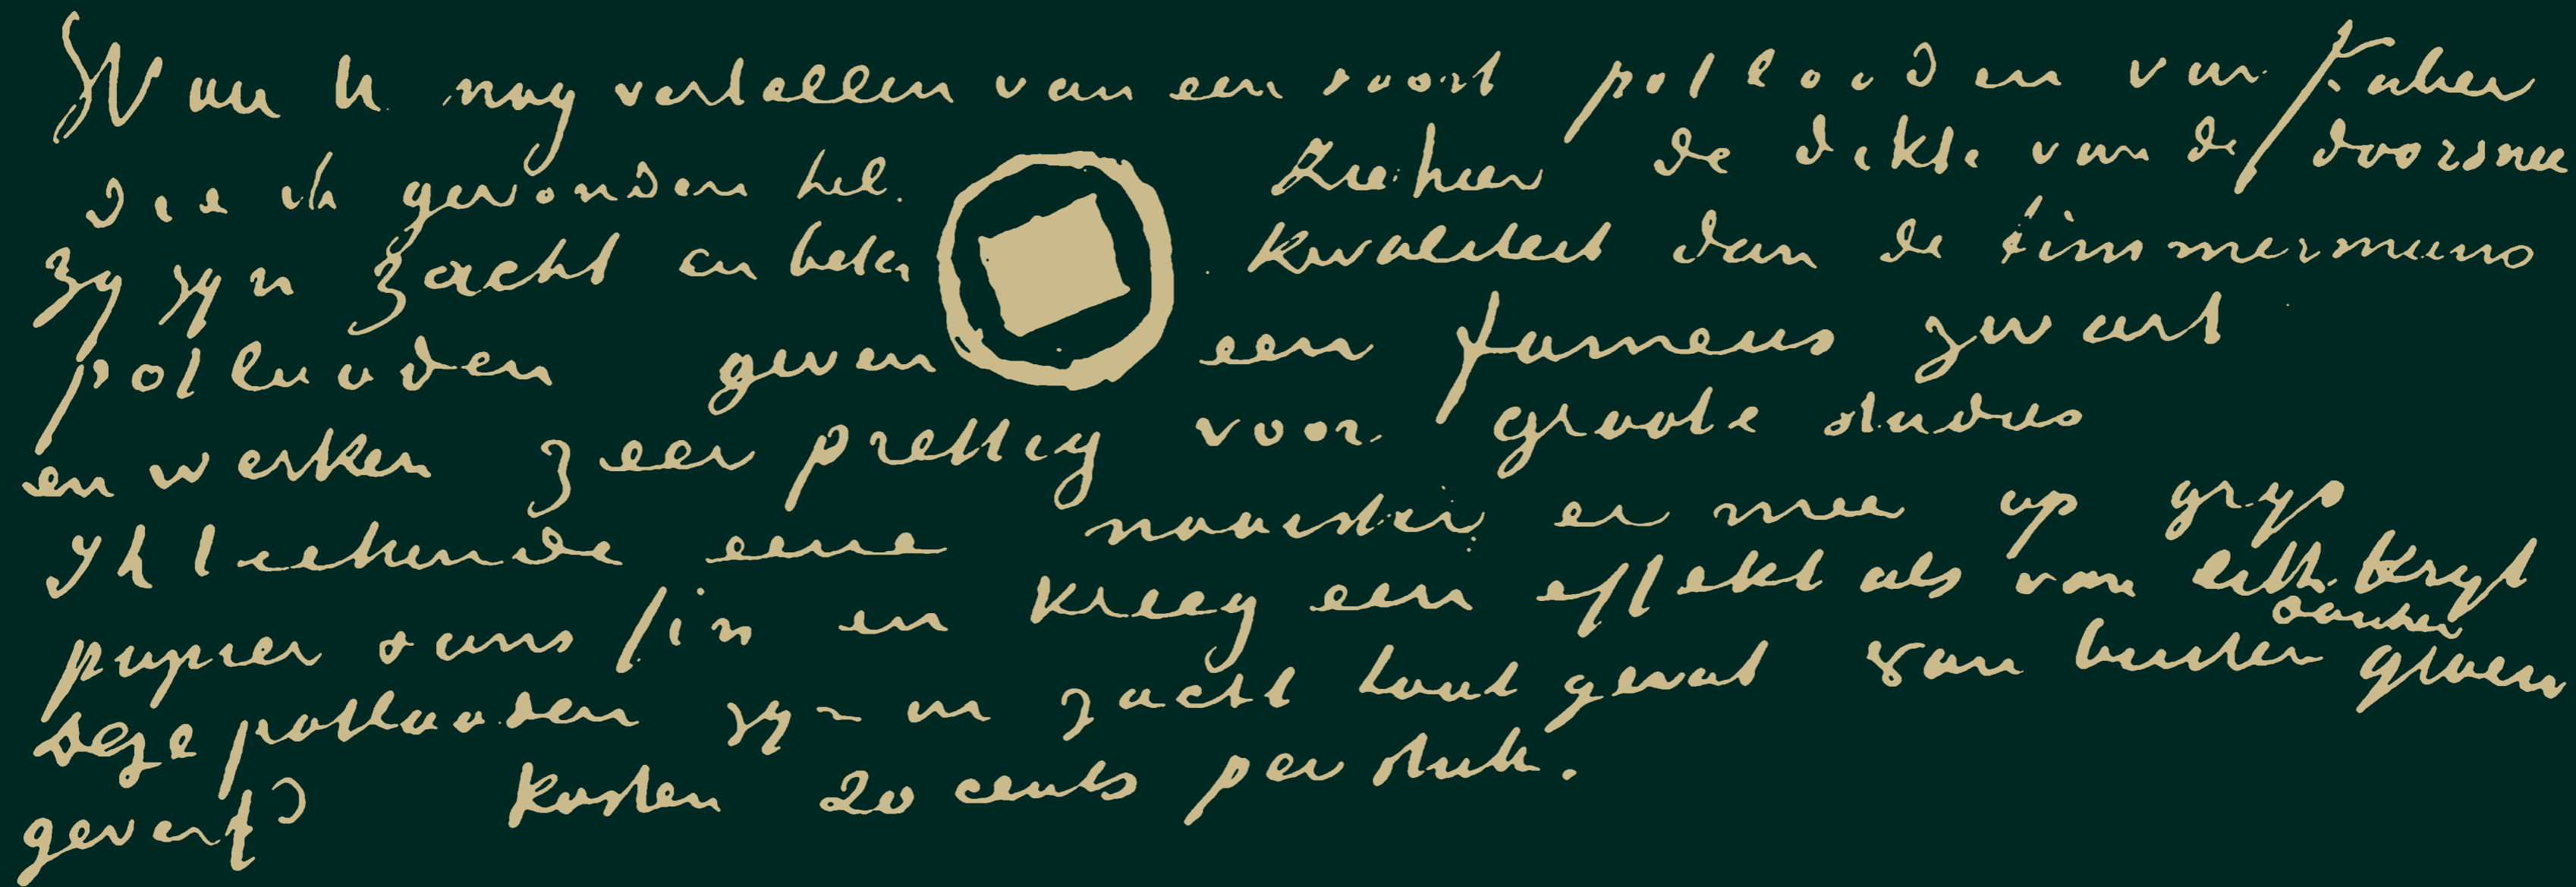 Wou U nog vertellen van een soort potlooden van Faber
die ik gevonden heb. Ziehier de dikte van de doorsnee
zy zyn zacht en beter kwaliteit dan de timmermans
potlooden geven een fameus zwart
en werken zeer prettig voor groote studies
Ik teekende eene naaister er mee op grys
papier sans fin en kreeg een effekt als van lith. kryt
deze potlooden zyn in zacht hout gevat van buiten donker groen
geverfd kosten 20 cents per stuk.